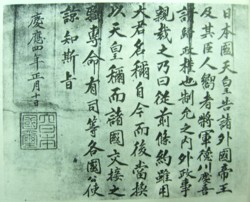 日本國天皇告諸外國帝王
及其臣人嚮者將軍德川慶喜
請歸政權也制允之內外政事
親裁之乃曰從前條約雖用
大君名稱自今而後當換
以天皇稱而諸國交接之
職專命有司等各國公使
諒知斯旨
慶應四年正月十日
大日本國璽